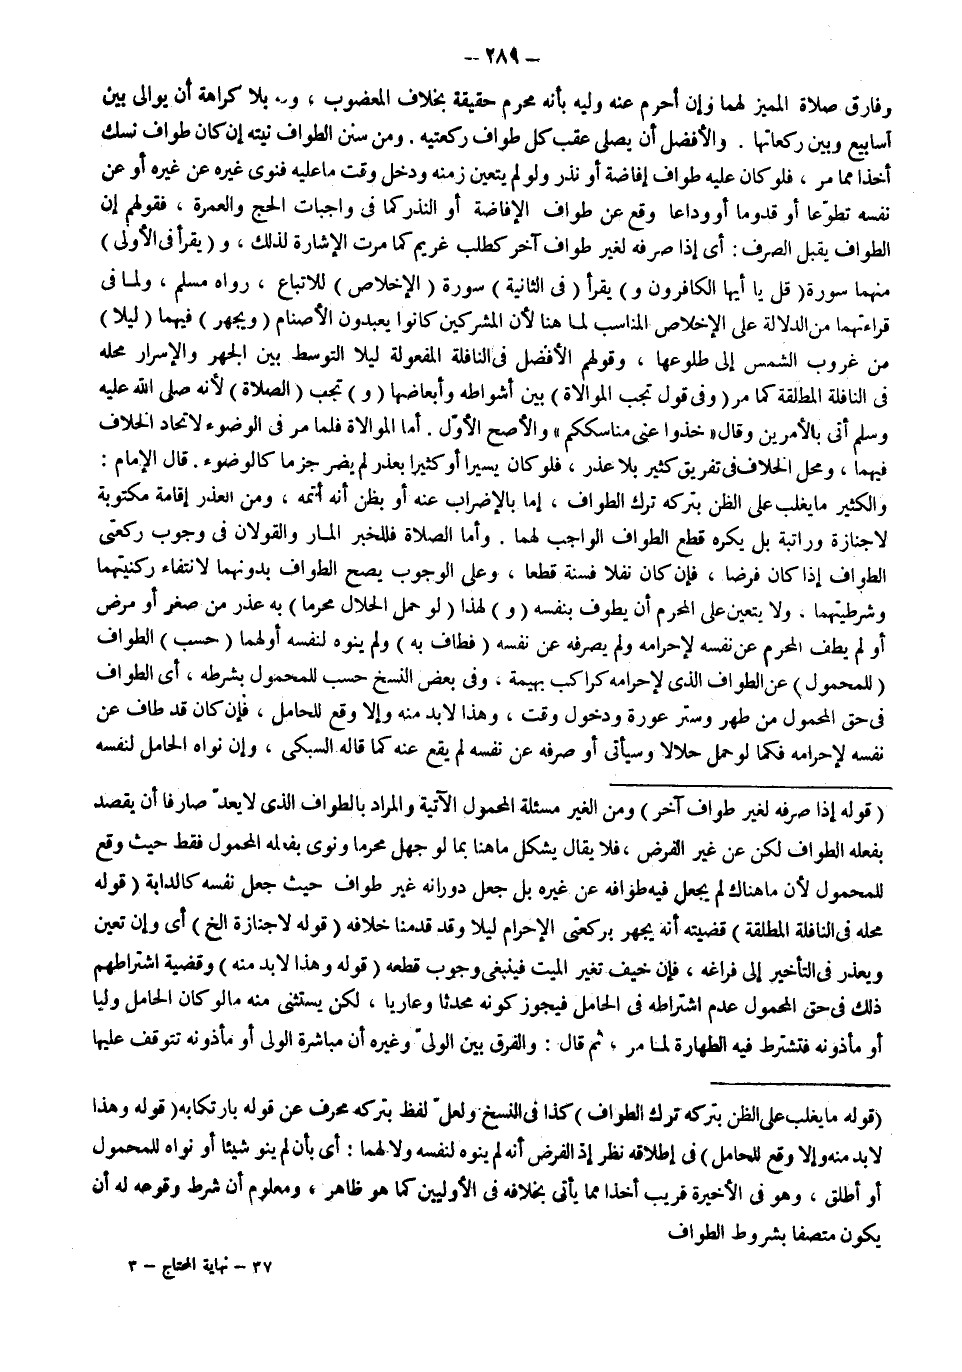 – ٢٨٩ –
وفارق صلاة المميز لهما وإن أحرم عنه وليه بأنه محرم حقيقة بخلاف المعضوب ، و.. بلا كراهة أن يوالى بين
أسابيع وبين ركعاتها . والأفضل أن يصلى عقب كل طواف ركعتيه . ومن سنن الطواف نيته إن كان طواف نسك
أخذا مما مر ، فلو كان عليه طواف إفاضة أو نذر ولو لم يتعين زمنه ودخل وقت ماعليه فنوى غيره عن غيره أو عن
نفسه تطوّعا أو قدوما أو وداعا وقع عن طواف الإفاضة أو النذر كما فى واجبات الحج والعمرة ، فقولهم إن
الطواف يقبل الصرف : أى إذا صرفه لغير طواف آخر كطلب غريم كما مرت الإشارة لذلك ، و ( يقرأ فى الأولى )
منهما سورة ( قل يا أيها الكافرون و ) يقرأ ( فى الثانية ) سورة ( الإخلاص ) للاتباع ، رواه مسلم ، ولما فى
قراءتهما من الدلالة على الإخلاص المناسب لما هنا لأن المشركين كانوا يعبدون الأصنام ( ويجهر ) فيهما ( ليلا )
من غروب الشمس إلى طلوعها ، وقولهم الأفضل فى النافلة المفعولة ليلا التوسط بين الجهر والإسرار محله
فى النافلة المطلقة كما مر ( وفى قول تجب الموالاة ) بين أشواطه وأبعاضها ( و ) تجب ( الصلاة ) لأنه صلى الله عليه
وسلم أتى بالأمرين وقال « خذوا عنى مناسككم » والأصح الأوّل . أما الموالاة فلما مر فى الوضوء لاتحاد الخلاف
فيهما ، ومحل الخلاف فى تفريق كثير بلا عذر ، فلو كان يسيرا أو كثيرا بعذر لم يضر جزما كالوضوء . قال الإمام :
والكثير مايغلب على الظن بتركه ترك الطواف ، إما بالإضراب عنه أو بظن أنه أتمه ، ومن العذر إقامة مكتوبة
لاجنازة وراتبة بل يكره قطع الطواف الواجب لهما . وأما الصلاة فللخبر المار والقولان فى وجوب ركعتى
الطواف إذا كان فرضا ، فإن كان نفلا فسنة قطعا ، وعلى الوجوب يصح الطواف بدونهما لانتفاء ركنيتهما
وشرطيتهما . ولا يتعين على المحرم أن يطوف بنفسه ( و ) لهذا ( لو حمل الحلال محرما ) به عذر من صغر أو مرض
أو لم يطف المحرم عن نفسه لإحرامه ولم يصرفه عن نفسه ( فطاف به ) ولم ينوه لنفسه أولهما ( حسب ) الطواف
( للمحمول ) عن الطواف الذى لإحرامه كراكب بهيمة ، وفى بعض النسخ حسب للمحمول بشرطه ، أى الطواف
فى حق المحمول من طهر وستر عورة ودخول وقت ، وهذا لابد منه وإلا وقع للحامل ، فإن كان قد طاف عن
نفسه لإحرامه فكما لو حمل حلالا وسيأتى أو صرفه عن نفسه لم يقع عنه كما قاله السبكى ، وإن نواه الحامل لنفسه
( قوله إذا صرفه لغير طواف آخر ) ومن الغير مسئلة المحمول الآتية والمراد بالطواف الذى لايعدّ صارفا أن يقصد
بفعله الطواف لكن عن غير الفرض ، فلا يقال يشكل ماهنا بما لو جهل محرما ونوى بفعله المحمول فقط حيث وقع
للمحمول لأن ماهناك لم يجعل فيه طوافه عن غيره بل جعل دورانه غير طواف حيث جعل نفسه كالدابة ( قوله
محله فى النافلة المطلقة ) قضيته أنه يجهر بركعتى الإحرام ليلا وقد قدمنا خلافه ( قوله لاجنازة الخ ) أى وإن تعين
ويعذر فى التأخير إلى فراغه ، فإن خيف تغير الميت فينبغى وجوب قطعه ( قوله وهذا لابد منه ) وقضية اشتراطهم
ذلك فى حق المحمول عدم اشتراطه فى الحامل فيجوز كونه محدثا وعاريا ، لكن يستثنى منه مالو كان الحامل وليا
أو مأذونه فتشترط فيه الطهارة لما مر ، ثم قال : والفرق بين الولىّ وغيره أن مباشرة الولى أو مأذونه تتوقف عليها
( قوله مايغلب على الظن بتركه ترك الطواف ) كذا فى النسخ ولعلّ لفظ بتركه محرف عن قوله بارتكابه ( قوله وهذا
لابد منه وإلا وقع للحامل ) فى إطلاقه نظر إذ الفرض أنه لم ينوه لنفسه ولا لهما : أى بأن لم ينو شيئا أو نواه للمحمول
أو أطلق ، وهو فى الأخيرة قريب أخذا مما يأتى بخلافه فى الأوليين كما هو ظاهر ، ومعلوم أن شرط وقوعه له أن
يكون متصفا بشروط الطواف
٣٧ – نهاية المحتاج – ٣